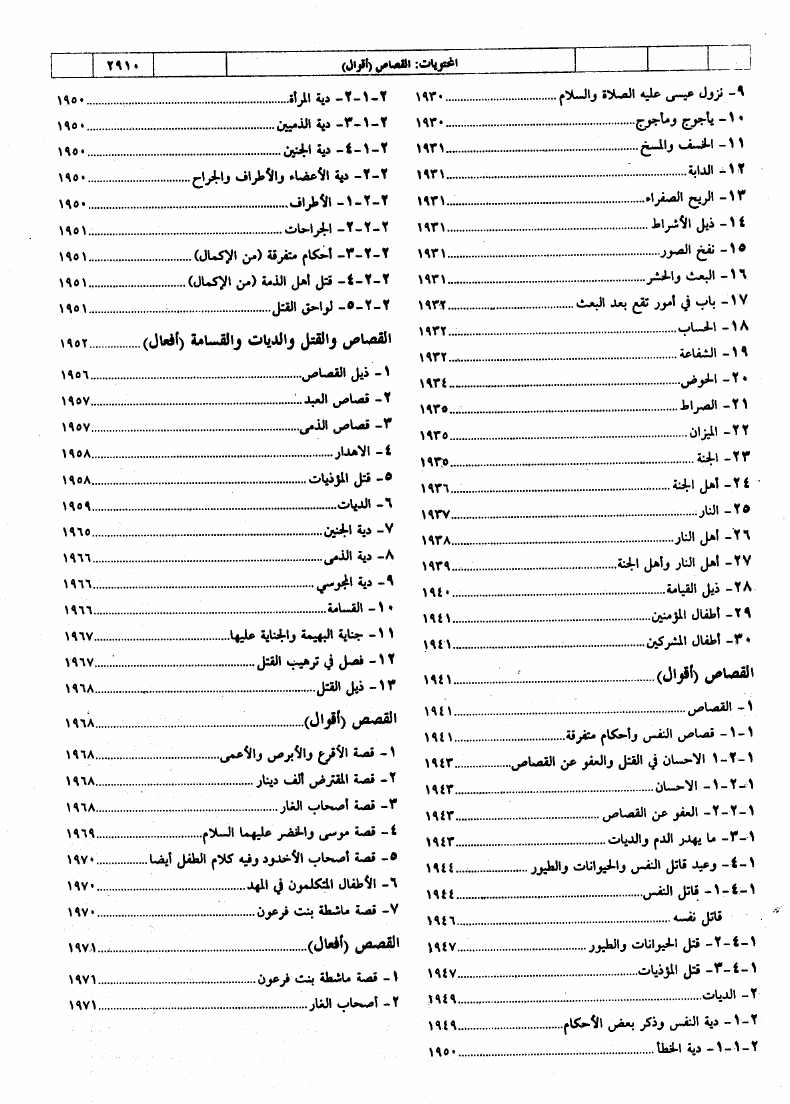 المحتويات: القصاص (أقوال) ٢٩١٠
٩- نزول عيسى عليه الصلاة والسلام ١٩٣٠
١٠- يأجوج ومأجوج ١٩٣٠
١١- الخسف والمسخ ١٩٣١
١٢- الدابة ١٩٣١
١٣- الريح الصفراء ١٩٣١
١٤- ذيل الأشراط ١٩٣١
١٥- نفخ الصور ١٩٣١
١٦- البعث والحشر ١٩٣١
١٧- باب في أمور تقع بعد البعث ١٩٣٢
١٨- الحساب ١٩٣٢
١٩- الشفاعة ١٩٣٢
٢٠- الحوض ١٩٣٤
٢١- الصراط ١٩٣٥
٢٢- الميزان ١٩٣٥
٢٣- الجنة ١٩٣٥
٢٤- أهل الجنة ١٩٣٦
٢٥- النار ١٩٣٧
٢٦- أهل النار ١٩٣٨
٢٧- أهل النار وأهل الجنة ١٩٣٩
٢٨- ذيل القيامة ١٩٤٠
٢٩- أطفال المؤمنين ١٩٤١
٣٠- أطفال المشركين ١٩٤١
القصاص (أقوال) ١٩٤١
١- القصاص ١٩٤١
١-١- قصاص النفس وأحكام متفرقة ١٩٤١
١-٢-١ الاحسان في القتل والعفو عن القصاص ١٩٤٣
١-٢-١- الاحسان ١٩٤٣
١-٢-٢- العفو عن القصاص ١٩٤٣
١-٣- ما يهدر الدم والديات ١٩٤٣
١-٤- وعيد قاتل النفس والحيوانات والطيور ١٩٤٤
١-٤-١- قاتل النفس ١٩٤٤
قاتل نفسه ١٩٤٦
١-٤-٢- قتل الحيوانات والطيور ١٩٤٧
١-٤-٣- قتل المؤذيات ١٩٤٧
٢- الديات ١٩٤٩
٢-١- دية النفس وذكر بعض الأحكام ١٩٤٩
٢-١-١- دية الخطأ ١٩٥٠
٢-١-٢- دية المرأة ١٩٥٠
٢-١-٣- دية الذميين ١٩٥٠
٢-١-٤- دية الجنين ١٩٥٠
٢-٢- دية الأعضاء والأطراف والجراح ١٩٥٠
٢-٢-١- الأطراف ١٩٥٠
٢-٢-٢- الجراحات ١٩٥١
٢-٢-٣- أحكام متفرقة (من الإكمال) ١٩٥١
٢-٢-٤- قتل أهل الذمة (من الإكمال) ١٩٥١
٢-٢-٥- لواحق القتل ١٩٥١
القصاص والقتل والديات والقسامة (أفعال) ١٩٥٢
١- ذيل القصاص ١٩٥٦
٢- قصاص العبد ١٩٥٧
٣- قصاص الذمى ١٩٥٧
٤- الاهدار ١٩٥٨
٥- قتل المؤذيات ١٩٥٨
٦- الديات ١٩٥٩
٧- دية الجنين ١٩٦٥
٨- دية الذمى ١٩٦٦
٩- دية المجوسي ١٩٦٦
١٠- القسامة ١٩٦٦
١١- جناية البهيمة والجناية عليها ١٩٦٧
١٢- فصل في ترهيب القتل ١٩٦٧
١٣- ذيل القتل ١٩٦٨
القصص (أقوال) ١٩٦٨
١- قصة الأقرع والأبرص والأعمى ١٩٦٨
٢- قصة المقترض ألف دينار ١٩٦٨
٣- قصة أصحاب الغار ١٩٦٨
٤- قصة موسى والخضر عليهما السلام ١٩٦٩
٥- قصة أصحاب الأخدود وفيه كلام الطفل أيضا ١٩٧٠
٦- الأطفال المتكلمون في المهد ١٩٧٠
٧- قصة ماشطة بنت فرعون ١٩٧٠
القصص (أفعال) ١٩٧١
١- قصة ماشطة بنت فرعون ١٩٧١
٢- أصحاب الغار ١٩٧١